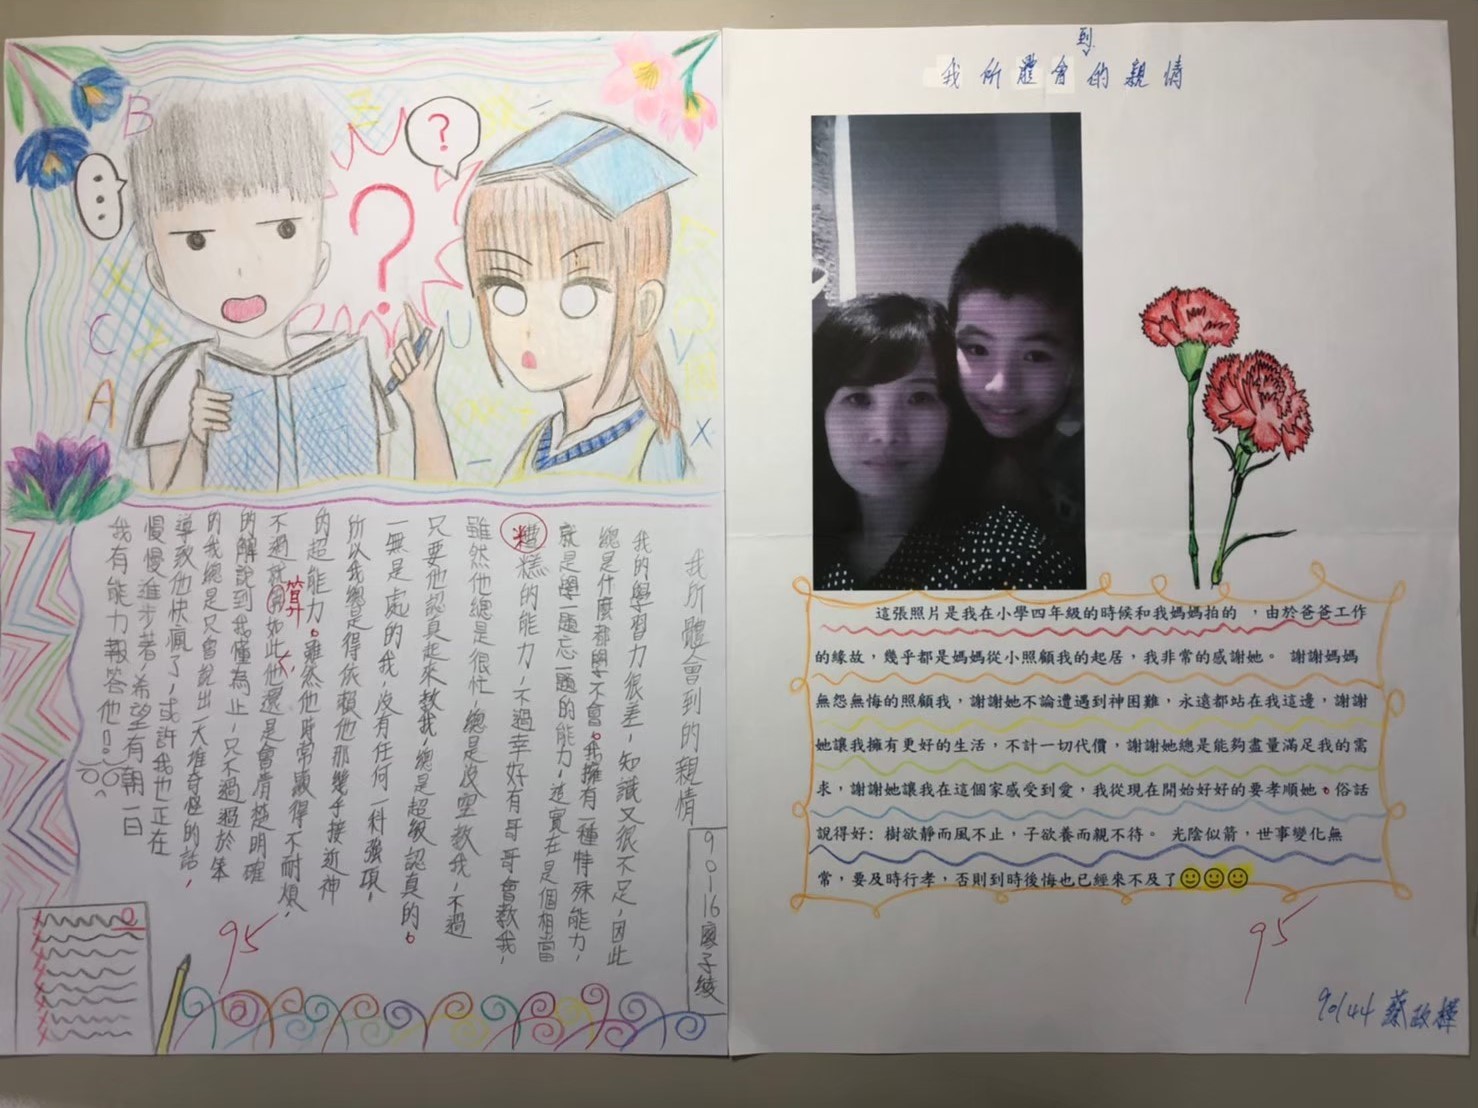 B
C
A
?
?
U
V
X
我所體會到的親情
90116廖子綾
我的學習力很差，知識又很不足，因此
總是什麼都學不會。我擁有一種特殊能力，
就是學一題忘一題的能力，這實在是個相當
糟糕的能力，不過幸好有哥哥會教我，
雖然他總是很忙，總是沒空教我，不過
只要他認真起來教我，總是超級認真的。
一無是處的我，沒有任何一科強項，
所以我總是得依賴他那幾乎接近神
的超能力。雖然他時常顯得不耐煩，
不過就算如此，他還是會清楚明確
的解說到我懂為止，只不過過於笨
的我總是只會說出一大堆奇怪的話，
導致他快瘋了，或許我也正在
慢慢進步著，希望有朝一日
我有能力報答他!!
95
我所體會到的親情
這張照片是我在小學四年級的時候和我媽媽拍的 ，由於爸爸工作
的緣故，幾乎都是媽媽從小照顧我的起居，我非常的感謝她。 謝謝媽媽
無怨無悔的照顧我，謝謝她不論遭遇到神困難，永遠都站在我這邊，謝謝
她讓我擁有更好的生活，不計一切代價，謝謝她總是能夠盡量滿足我的需
求，謝謝她讓我在這個家感受到愛，我從現在開始好好的要孝順她。俗話
說得好: 樹欲靜而風不止，子欲養而親不待。 光陰似箭，世事變化無
常，要及時行孝，否則到時後悔也已經來不及了
95
90144 蔡政樺